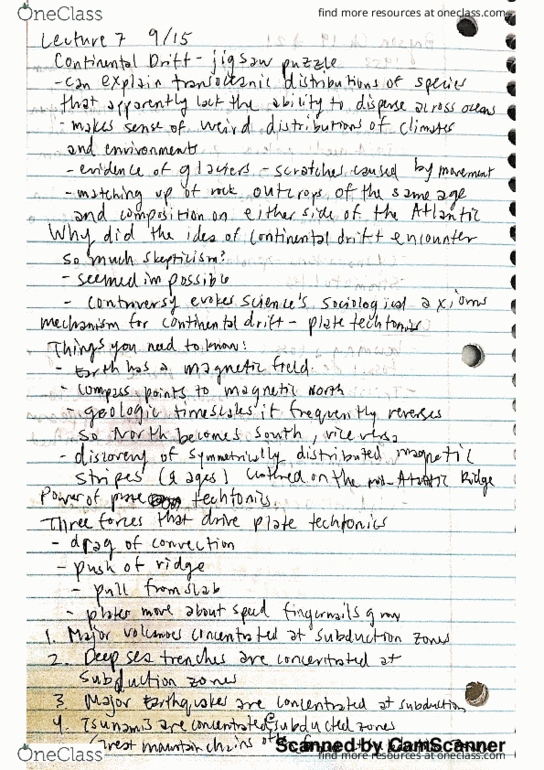 OneClass
find more resources at oneclass.com
Lecture 7 9/15
Continental Drift - jigsaw puzzle
- can explain transoceanic distributions of species
that apparently lack the ability to disperse across oceans
- makes sense of weird distributions of climates
and environments
- evidence of glaciers - scratches caused by movement
- matching up of rock outcrops of the same age
and composition on either side of the Atlantic
Why did the idea of continental drift encounter
so much skepticism?
- seemed impossible
- controversy evokes science's sociological axioms
mechanism for continental drift - plate techtonics
Things you need to know:
- Earth has a magnetic field
- compass points to magnetic north
- geologic timescales it frequently reverses
so North becomes South, vice versa
- discovery of symmetrically distributed magnetic
stripes (& ages) centered on the mid-Atlantic Ridge
Power of plate techtonics
Three forces that drive plate techtonics
- drag of convection
- push of ridge
- pull from slab
- plates move about speed fingernails grow
1. Major volcanoes concentrated at subduction zones
2. Deep sea trenches are concentrated at
subduction zones
3. Major Earthquakes are concentrated at subduction
4. Tsunamis are concentrated @ subducted zones
Great mountain chains
Scanned by CamScanner
OneClass
find more resources at oneclass.com